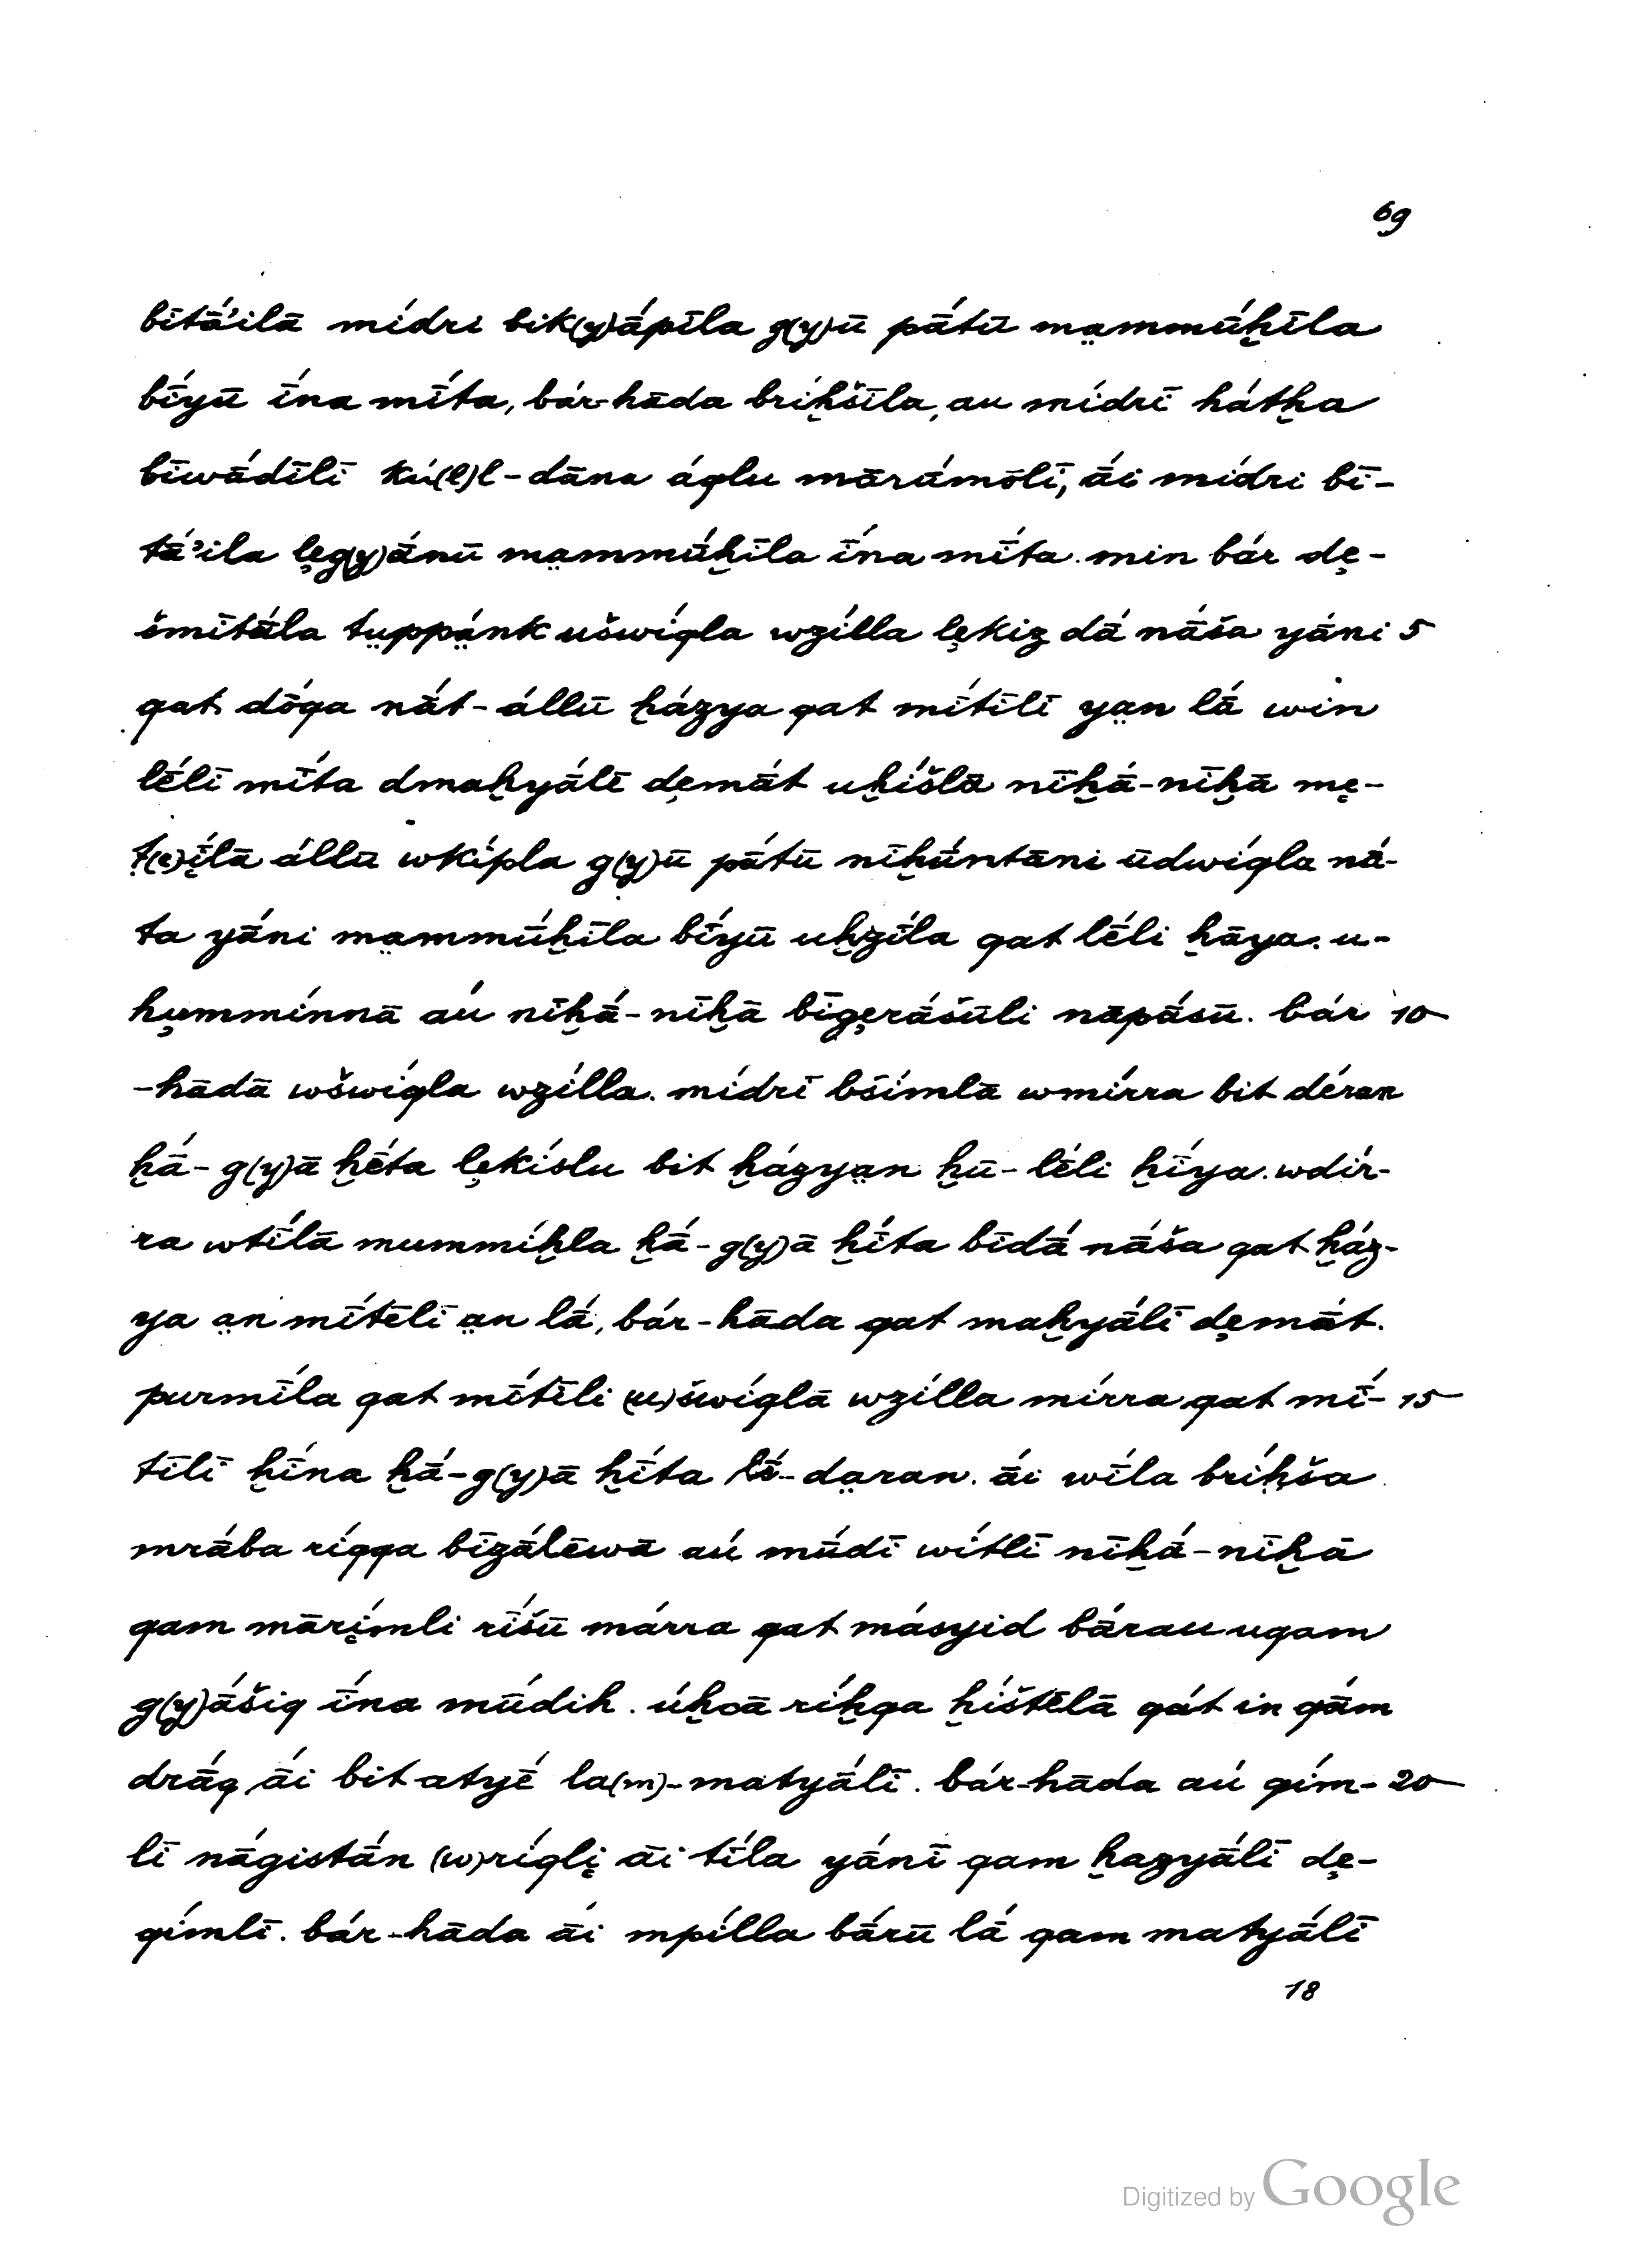 69
bītā́'ilā mídri bik(y)ā́pīla g(y)ū pā́tū ma̤mmúḫīla
bī́yū ī́na mī́ta, bár-hāda bríḫšīla, au mídrī hátḫa
bīwā́dīlī kú(l)l-dāna áqlu mārámōlī, ā́i mídri bī-
tā́'ila lę̄g(y)ā́nū ma̤mmúḫīla ī́na mī́ta. min bár dę-
šmītā́la tṳppa̤nk ušwíqla wzílla lękiz dā́ nā́ša yáni 5
qat dṓqa nāt-állū ḫázya qat mī́tīlī ya̤n lā́ win
lḗlī mī́ta dmaḫyā́lē dęmā́t uḫíšlā nīḫā́-nīḫā mę-
ṭ(e)į̄́lā állū wkípla g(y)ū pā́tū nīḫúntāni ūdwíqla nā́-
ta yáni ma̤mmúḫīla bī́yū uḫzī́la qat lḗli ḫāya. u-
hųmmínnā aú nīḫā́-nīḫā bīgęrā́šūli nāpā́sū. bár 10
-hādā wšwíqla wzílla. mídrī bsímlā wmírra bit déran
ḫā́-g(y)ā ḫḗta lękíslu bit ḫázya̤n ḫū-lḗli ḫī́ya. wdír-
ra wtī́lā mummíḫla ḫā́-g(y)ā ḫī́ta bīdā́ nā́ša qat ḫáz-
ya a̤n mī́tēlī a̤n lā́, bár-hāda qat maḫyā́lī dęmā́t.
purmī́la qat mī́tīli (u)šwíqlā wzílla mírra qat mī́- 15
tīlī ḫína ḫā́-g(y)ā ḫī́ta lḗ-da̤ran. ā́i wī́la bríḥša
mrā́ba ríqqa bīzálēwā aú mū́dī wítlī nīḫā́-nīḫā
qam mārį́mli rī́šū márra qat másyid bā́rau uqam
g(y)ā́šiq ī́na mū́dih. úḫcā ríḫqa ḫíštēlā qát in qā́m
drā́q ā́i bit atyḗ la(m)-matyā́lī. bár-hāda aú qím- 20
lī nā́gistā́n (w)ríqlį āi tī́la yánī qam ḫazyā́lī dę-
qímlī. bár-hāda āi mpílla bā́rū lā́ qam matyā́lī
18
Digitized by Google